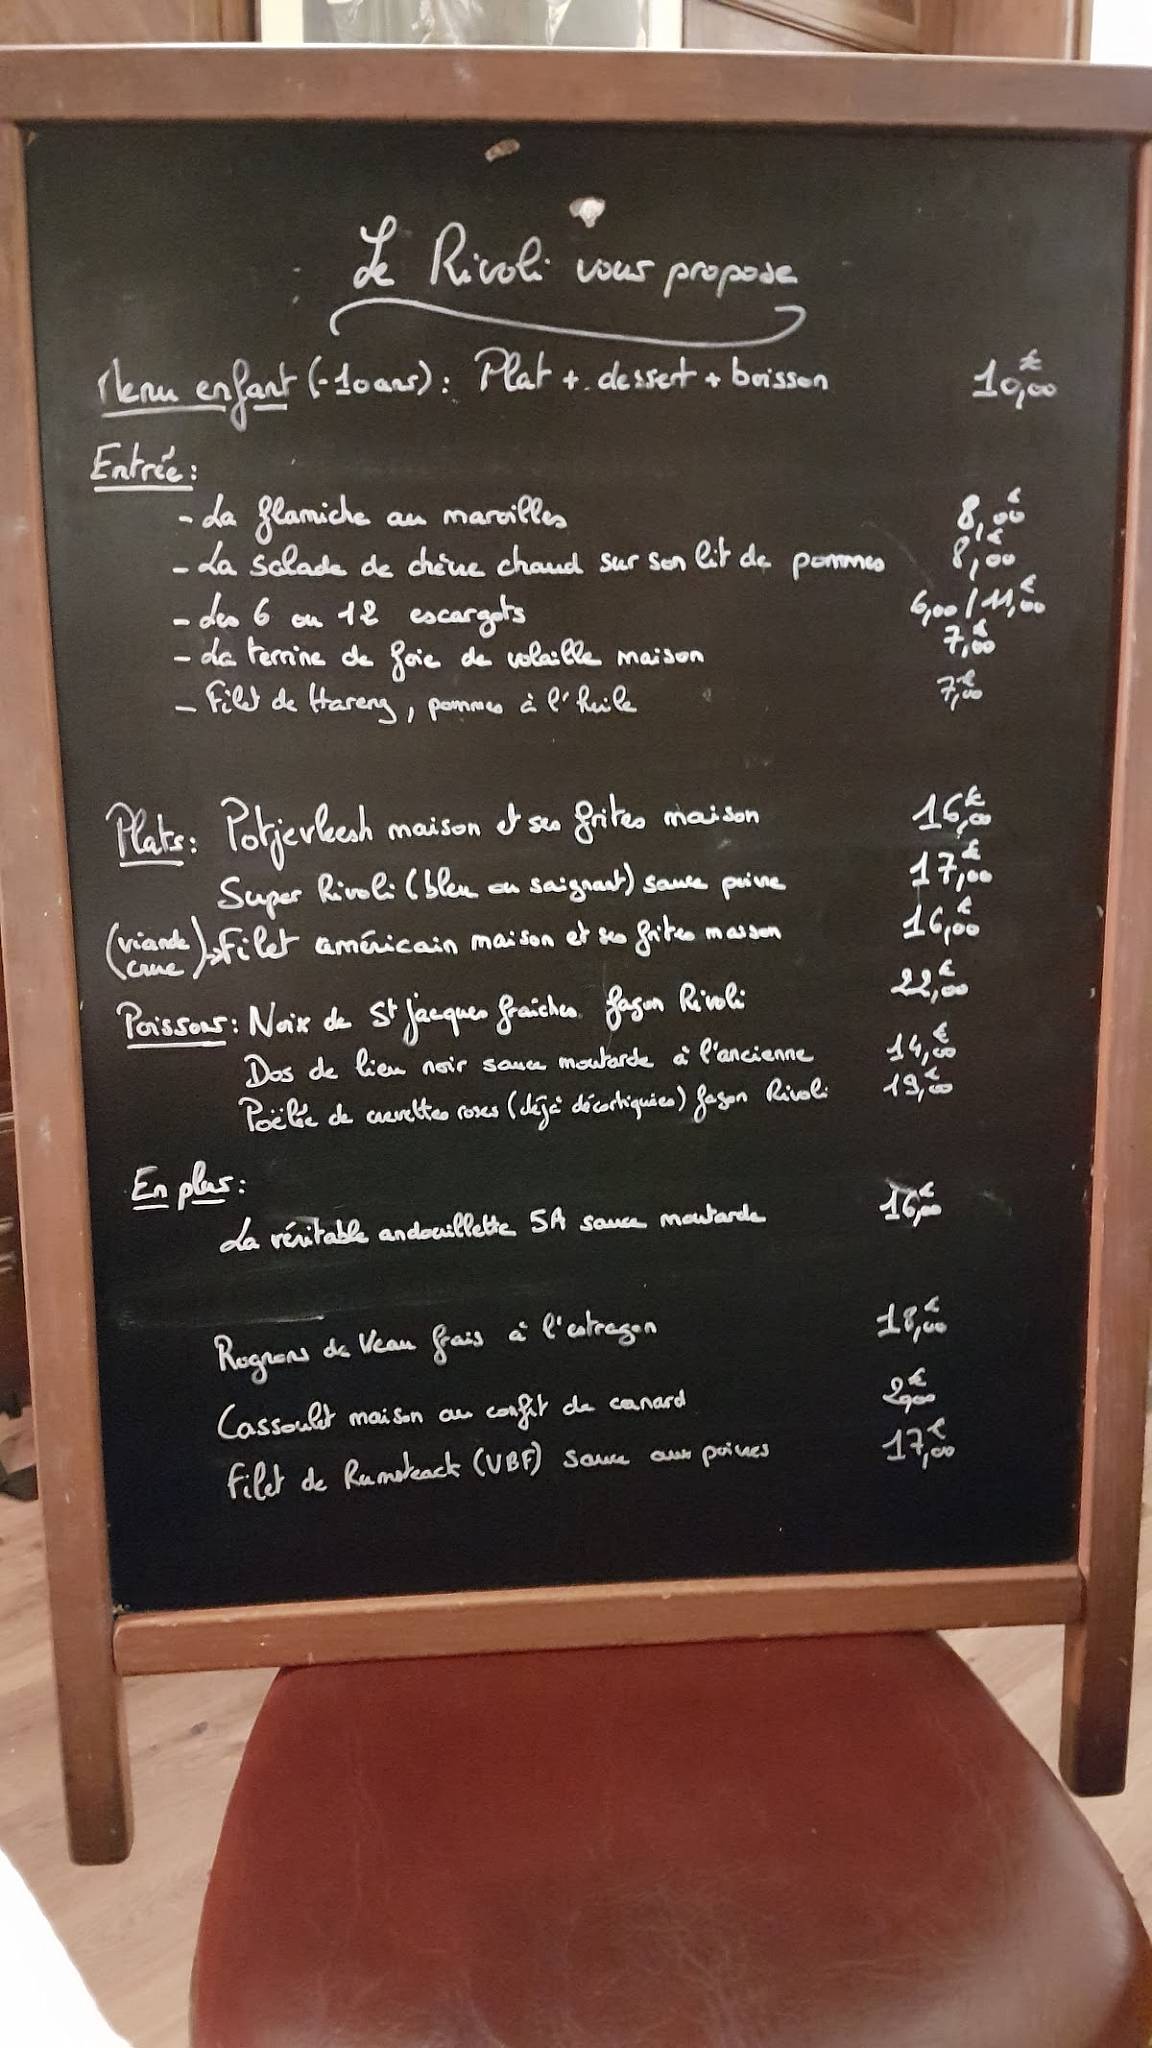 Le Rivoli vous propose
Menu enfant (-10ans): Plat + dessert + boisson 10,00€
Entrée:
- La flamiche au maroilles 8,00€
- La salade de chèvre chaud sur son lit de pommes 8,00€
- Les 6 ou 12 escargots 6,00 / 11,00€
- La terrine de foie de volaille maison 7,00€
- Filet de Hareng, pommes à l'huile 7,00€
Plats: Potjevleesh maison et ses frites maison 16,00€
Super Rivoli (bleu ou saignant) sauce poivre 17,00€
(viande crue) → Filet américain maison et ses frites maison 16,00€
Poissons: Noix de St Jacques fraîches façon Rivoli 22,00€
Dos de lieu noir sauce moutarde à l'ancienne 14,00€
Poëlée de crevettes roses (déjà décortiquées) façon Rivoli 19,00€
En plus:
La véritable andouillette 5A sauce moutarde 16,00€
Rognons de Veau frais à l'estragon 18,00€
Cassoulet maison au confit de canard
Filet de Rumsteack (VBF) sauce aux poivres 17,00€